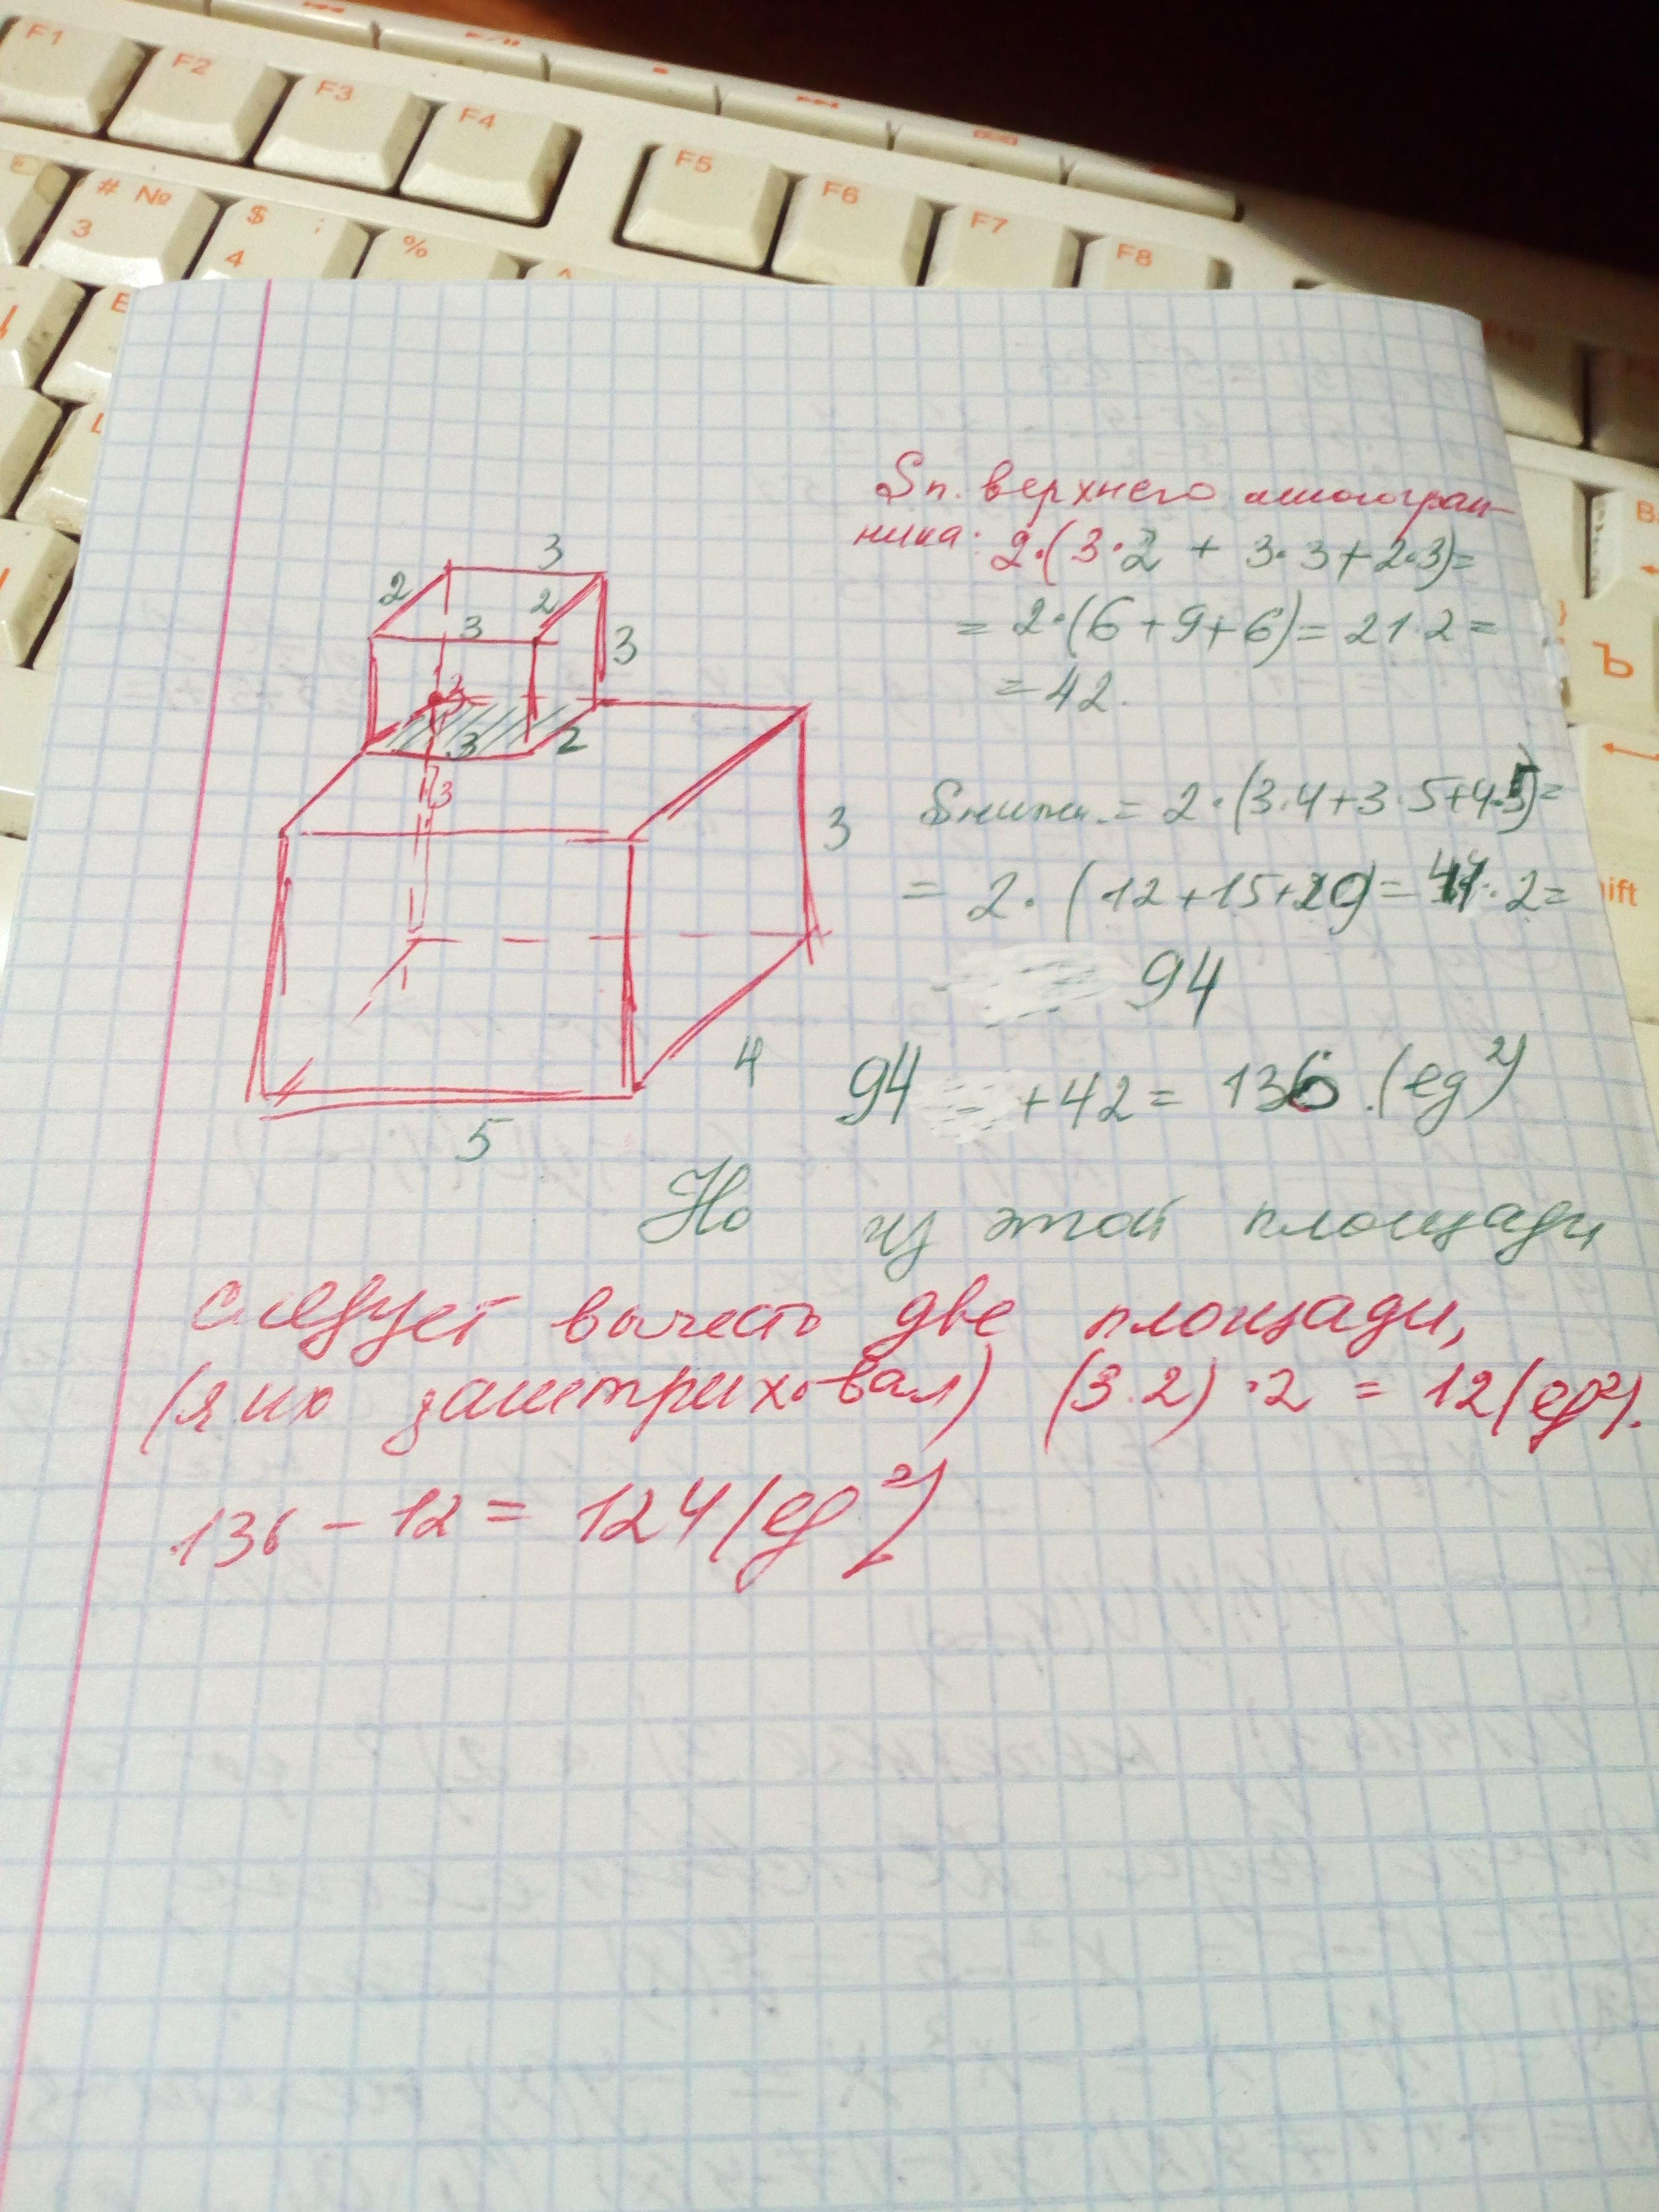 F1
F2
F3
F4
F5
F6
F7
F8
# №
3
$ ;
4
%
E
Ъ
Sп. верхнего многогран-
ника: 2·(3·2 + 3·3+2·3)=
= 2·(6+9+6)= 21·2=
= 42.
3
2
2
3
3
3
3
2
3
3
4
5
Sнижн. = 2·(3·4+3·5+4·5)=
= 2·(12+15+20)= 47·2=
94
94 +42= 136 (ед²)
Но из этой площади
следует вычесть две площади,
(я их заштриховал) (3·2)·2 = 12(ед²).
136 - 12 = 124(ед²)